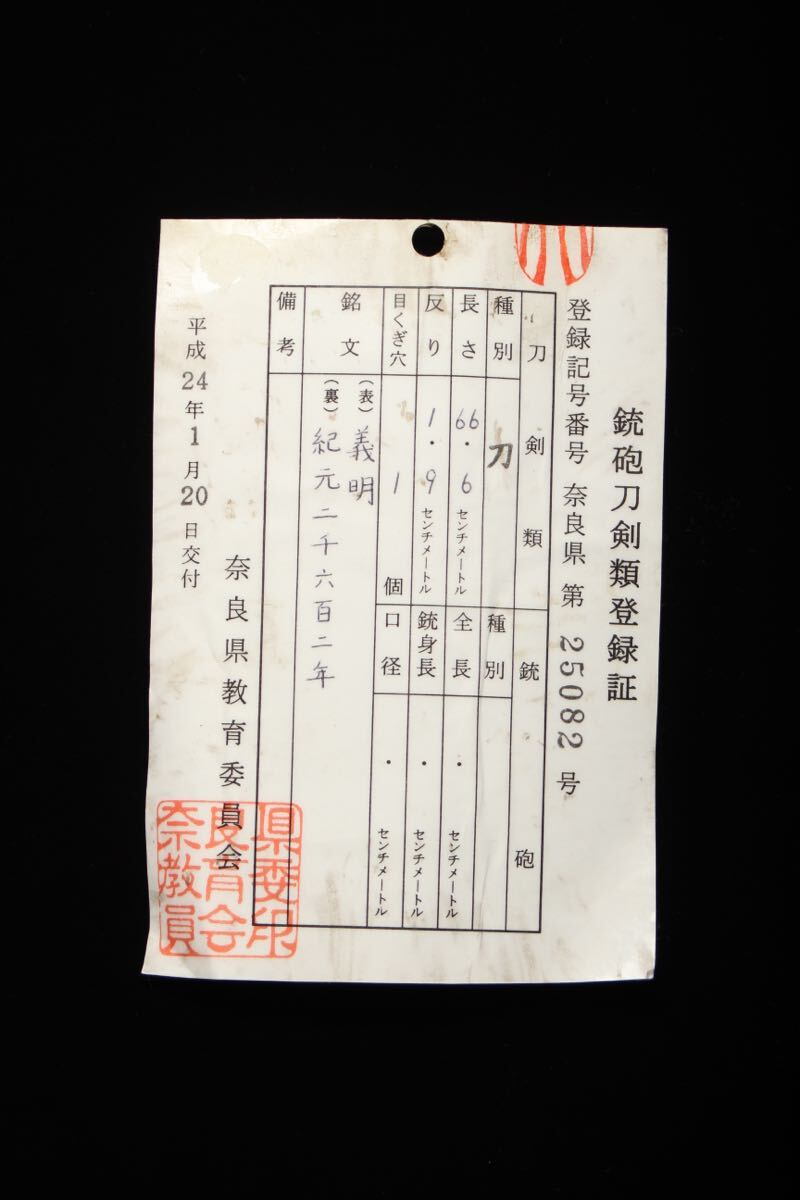 銃砲刀剣類登録証
登録記号番号 奈良県 第 25082 号
刀剣類
銃砲
種別 刀
長さ 66.6 センチメートル
反り 1.9 センチメートル
目くぎ穴 1 個
種別
全長 ・ センチメートル
銃身長 ・ センチメートル
口径 ・ センチメートル
銘文 (表) 義明
(裏) 紀元二千六百二年
備考
平成24年1月20日交付
奈良県教育委員会
県委印
良育会
奈教員